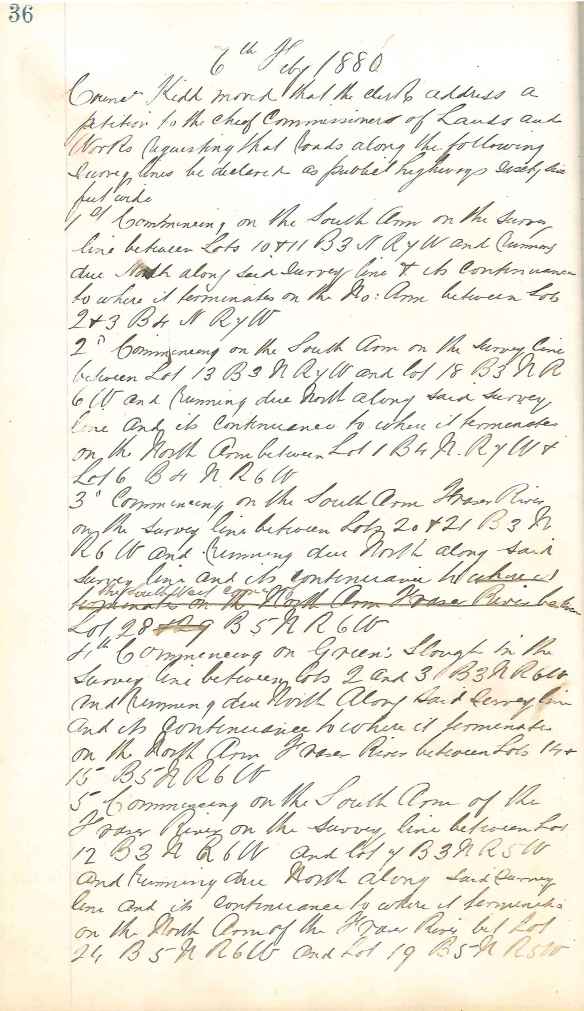 36
6th Feby 1880
Counr Kidd moved that the clerk address a
petition to the chief Commissioners of Lands and
Works requesting that roads along the following
Survey lines be declared as public highways sixty six
feet wide
1st Commencing on the South Arm on the survey
line between Lots 10 & 11 B3 N R7W and running
due North along said survey line & its continuance
to where it terminates on the No: Arm between Lots
2 & 3 B4 N R7W
2d Commencing on the South Arm on the survey line
between Lot 13 B3 N R7W and lot 18 B3 N R
6W and running due North along said survey
line and its continuance to where it terminates
on the North Arm between Lot 1 B4 N. R7W &
Lot 6 B4 N R6W
3d Commencing on the South Arm Fraser River
on the survey line between Lots 20 & 21 B3 N
R6W and running due North along said
survey line and its continuance to where it
the South West corner of
terminates on the North Arm Fraser River between
Lot 28 & 29 B5 N R6W
4th Commencing on Green's Slough in the
Survey line between lots 2 and 3 B3 N R6W
and running due North Along said survey line
and its continuance to where it terminates
on the North Arm Fraser River between Lots 14 &
15 B5 N R6W
5 Commencing on the South Arm of the
Fraser River on the survey line between Lot
12 B3 N R6W and lot 7 B3 N R5W
and running due North along said survey
line and its continuance to where it terminates
on the North Arm of the Fraser River bet Lot
24 B5 N R6W and Lot 19 B5 N R5W